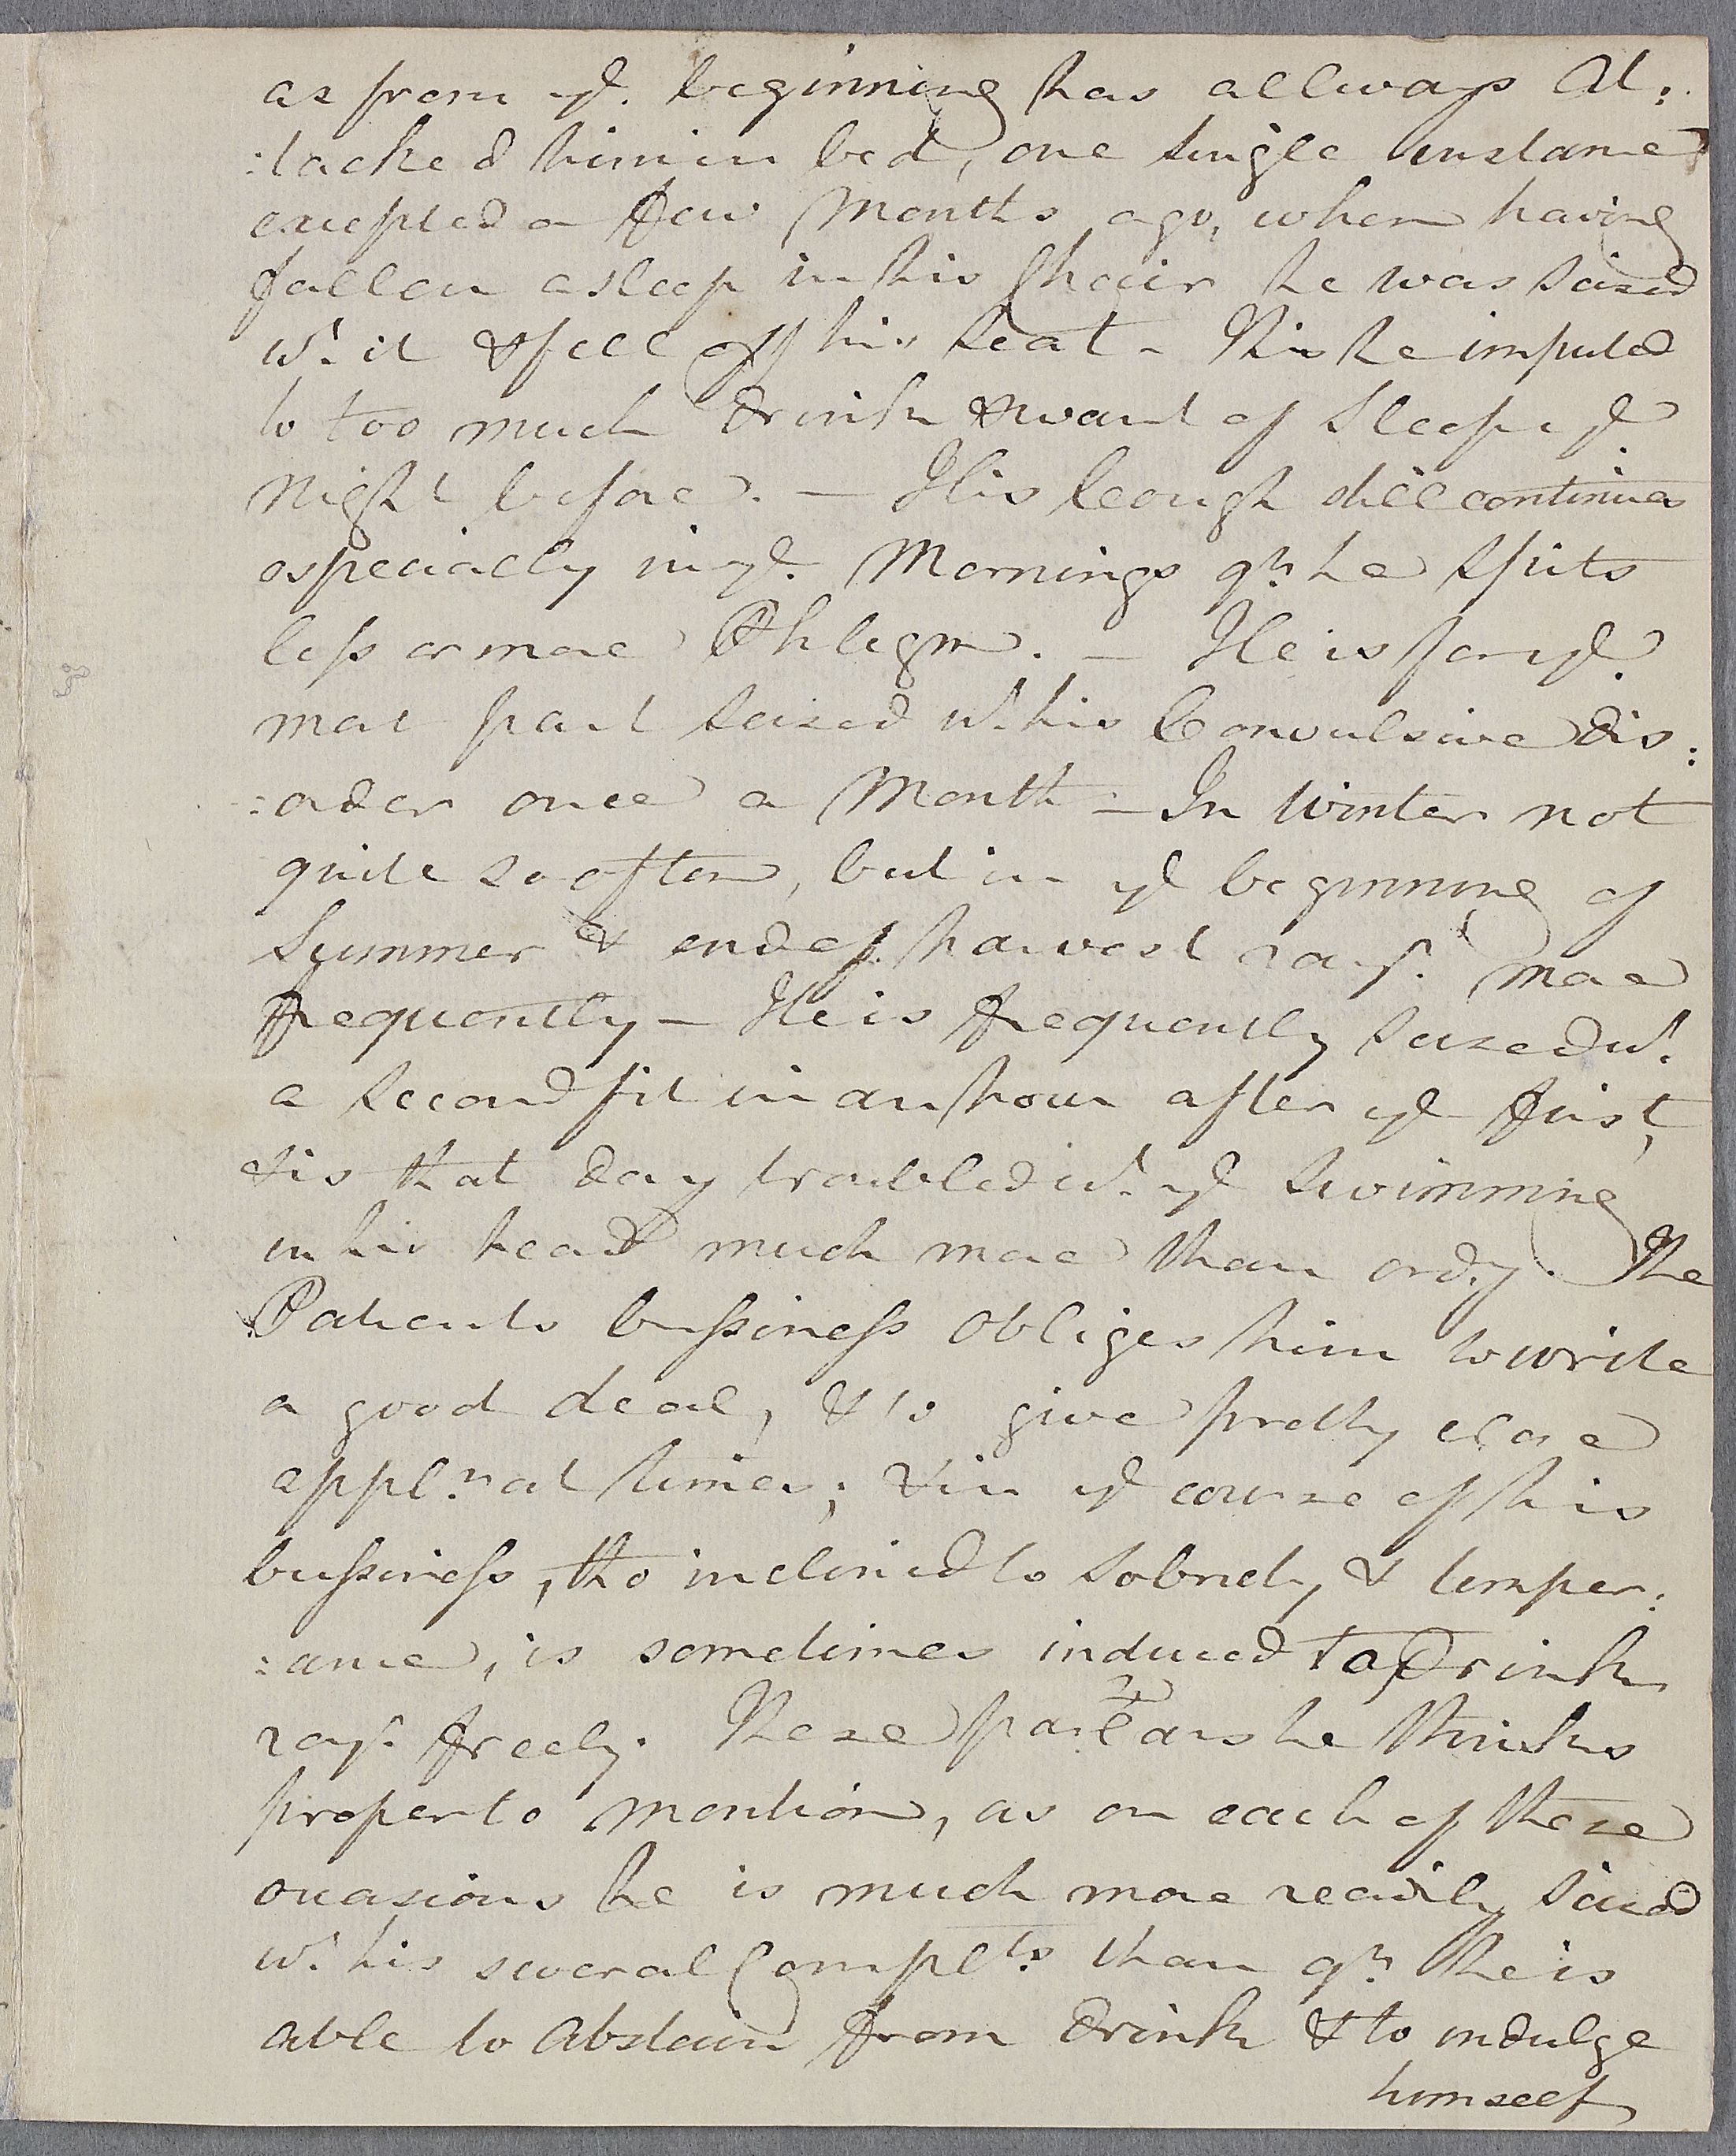 as from ye. beginning has allways At:
:tacked him in bed, one single instance
excepted a few Months ago, when having
fallen asleep in his Chair he was seized
wt. it & fell off his seat - This he imputed
to too much drink & want of sleep ye.
night before. — His Cough still continues
especially in ye. Mornings qn. he spits
less or more Phlegm. — He is for ye.
most part seized wt. his Convulsive dis:
:order once a Month — In Winter not
quite so often, but in ye beginning of
Summer & end of harvest rayr. more
frequently — He is frequently seized wt.
a second fit in an hour after ye first,
& is that day troubled wt. ye swimming
in his head much more than ordy. The
Patients bussiness obliges him to write
a good deal, & to give pretty close
appln. at times; & in ye course of his
bussiness, tho inclined to sobriety & temper:
:ance, is sometimes induced to drink
rayr. freely. These parlars he thinks
proper to mention, as on each of these
occasions he is much more readily seized
wt. his several Complts. than qn. he is
able to abstain from drink & to indulge
himself